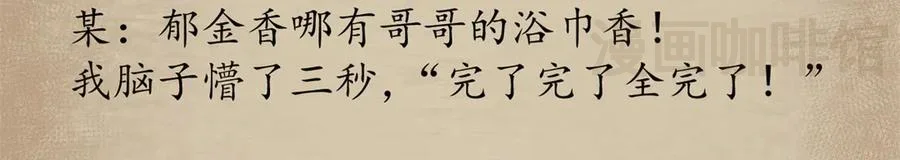 某：郁金香哪有哥哥的浴巾香！
我脑子懵了三秒，“完了完了全完了！”
漫画咖啡馆